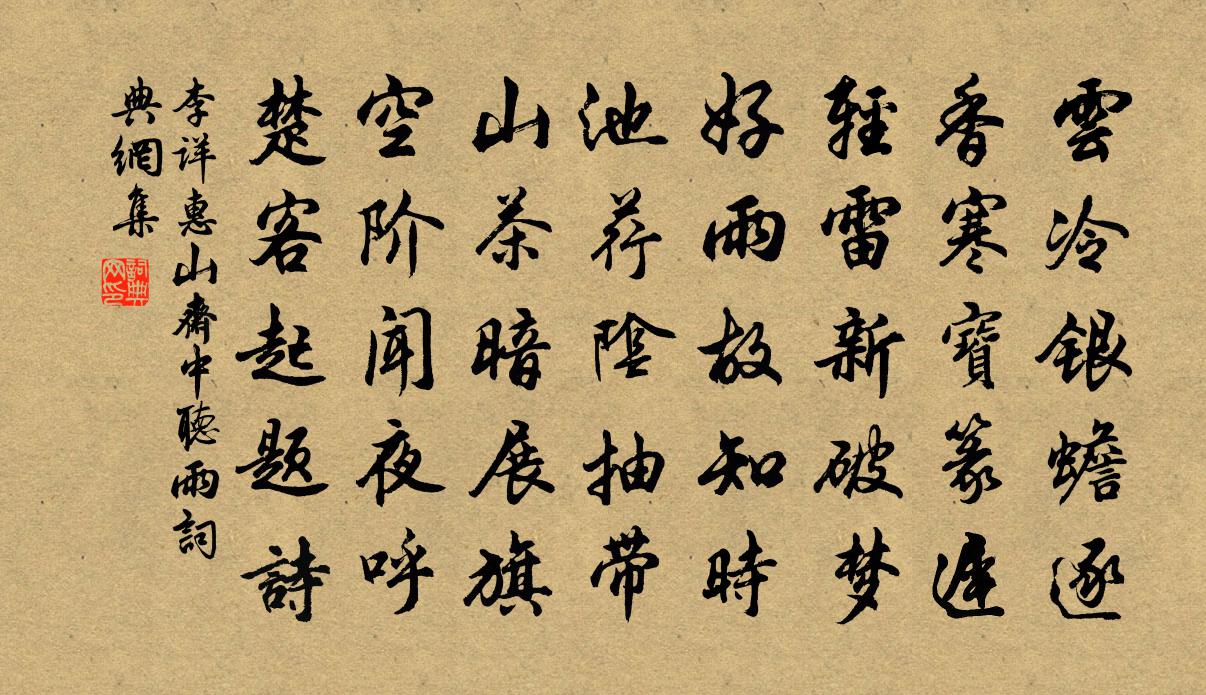 雲冷銀蟾逐
香寒寶篆遲
輕雷新破梦
好雨故知時
池荇陰抽带
山茶暗展旗
空阶闻夜呼
楚客起题詩
李詳惠山齋中聽雨詞
典網集
詞典
网印